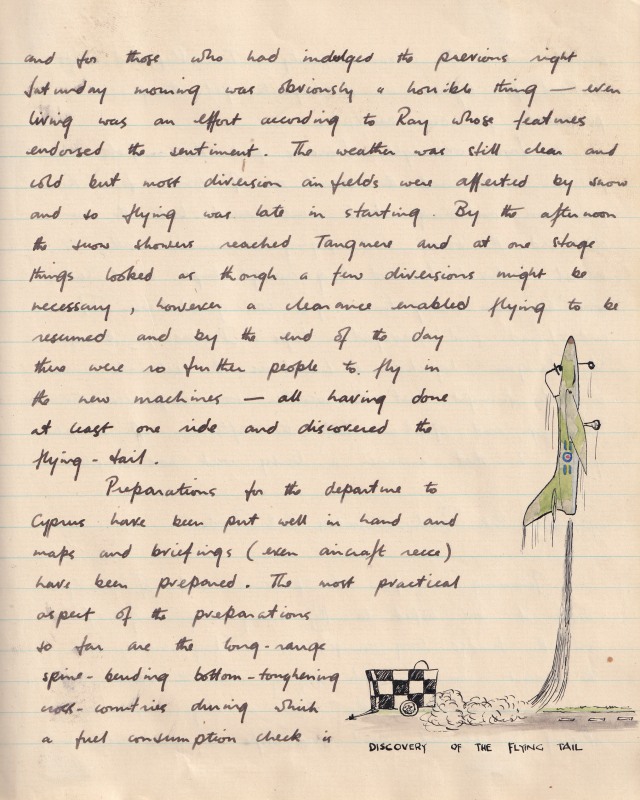 and for those who had indulged the previous night
Saturday morning was obviously a horrible thing — even
living was an effort according to Ray whose features
endorsed the sentiment. The weather was still clear and
cold but most diversion airfields were affected by snow
and so flying was late in starting. By the afternoon
the snow showers reached Tangmere and at one stage
things looked as though a few diversions might be
necessary, however a clearance enabled flying to be
resumed and by the end of the day
there were no further people to fly in
the new machines — all having done
at least one ride and discovered the
flying-tail.
Preparations for the departure to
Cyprus have been put well in hand and
maps and briefings (even aircraft recce)
have been prepared. The most practical
aspect of the preparations
so far are the long-range
spine-bending bottom-toughening
cross-countries during which
a fuel consumption check is
DISCOVERY OF THE FLYING TAIL